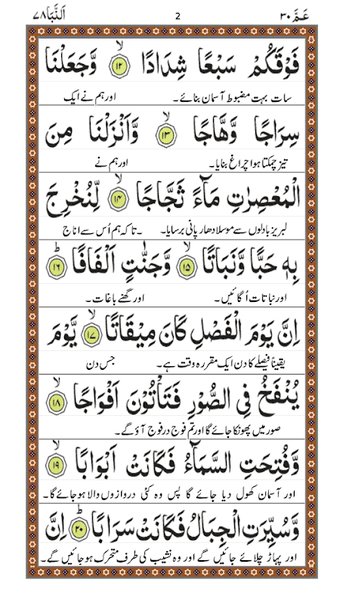 اَلنَّبَا ۷۸ 2 عَمَّ ۳۰
فَوْقَكُمْ سَبْعًا شِدَادًا ۙ﴿۱۲﴾ وَّجَعَلْنَا
سات بہت مضبوط آسمان بنائے۔ اور ہم نے ایک
سِرَاجًا وَّهَّاجًا ۙ﴿۱۳﴾ وَّاَنْزَلْنَا مِنَ
تیز چمکتا ہوا چراغ بنایا۔ اور ہم نے
الْمُعْصِرٰتِ مَآءً ثَجَّاجًا ۙ﴿۱۴﴾ لِّنُخْرِجَ
لبریز بادلوں سے موسلا دھار پانی برسایا۔ تاکہ ہم اُس سے اناج
بِهٖ حَبًّا وَّنَبَاتًا ۙ﴿۱۵﴾ وَّجَنّٰتٍ اَلْفَافًا ؕ﴿۱۶﴾
اور نباتات اُگائیں۔ اور گھنے باغات۔
اِنَّ يَوْمَ الْفَصْلِ كَانَ مِيْقَاتًا ۙ﴿۱۷﴾ يَّوْمَ
یقیناً فیصلے کا دن ایک مقررہ وقت ہے۔ جس دن
يُنْفَخُ فِى الصُّوْرِ فَتَاْتُوْنَ اَفْوَاجًا ۙ﴿۱۸﴾
صور میں پھونکا جائے گا اور تم فوج در فوج آؤ گے۔
وَّفُتِحَتِ السَّمَآءُ فَكَانَتْ اَبْوَابًا ۙ﴿۱۹﴾
اور آسمان کھول دیا جائے گا پس وہ کئی دروازوں والا ہوجائے گا۔
وَّسُيِّرَتِ الْجِبَالُ فَكَانَتْ سَرَابًا ؕ﴿۲۰﴾ اِنَّ
اور پہاڑ چلائے جائیں گے اور وہ نشیب کی طرف متحرک ہوجائیں گے۔